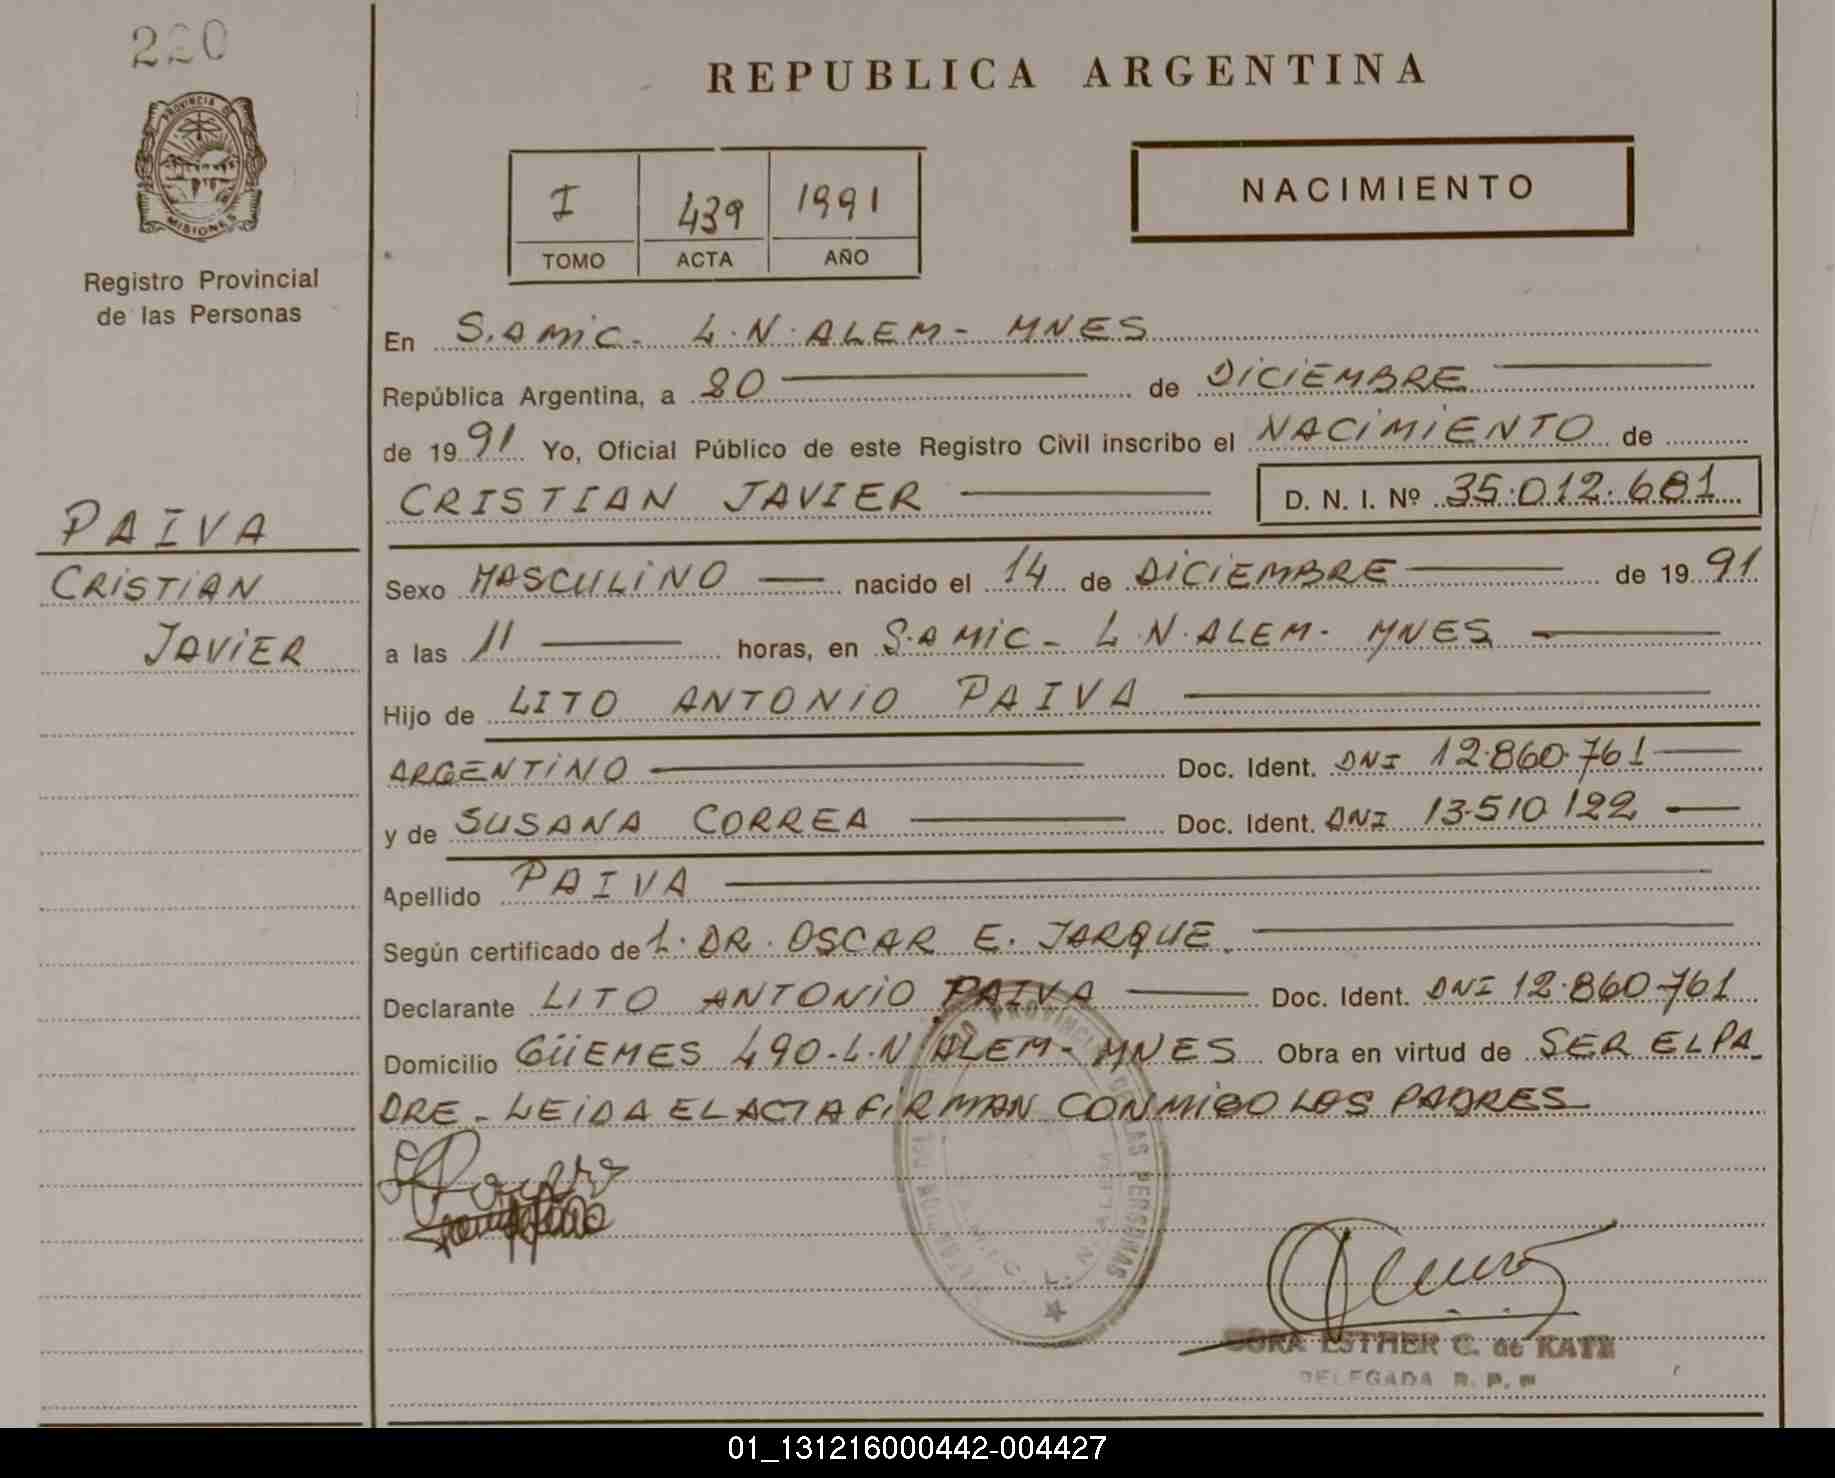 220
PROVINCIA DE
MISIONES
Registro Provincial
de las Personas
PAIVA
CRISTIAN
JAVIER
REPUBLICA ARGENTINA
I 439 1991
TOMO ACTA AÑO
NACIMIENTO
En S.AMIC- L.N.ALEM- MNES
República Argentina, a 20 de DICIEMBRE
de 1991 Yo, Oficial Público de este Registro Civil inscribo el NACIMIENTO de
CRISTIAN JAVIER D. N. I. Nº 35.012.681
Sexo MASCULINO nacido el 14 de DICIEMBRE de 1991
a las 11 horas, en S.AMIC- L.N.ALEM- MNES
Hijo de LITO ANTONIO PAIVA
ARGENTINO Doc. Ident. DNI 12.860.761
y de SUSANA CORREA Doc. Ident. DNI 13.510.122
Apellido PAIVA
Según certificado de L. DR. OSCAR E. JARQUE.
Declarante LITO ANTONIO PAIVA Doc. Ident. DNI 12.860.761
Domicilio GÜEMES 490-L.N ALEM- MNES Obra en virtud de SER EL PA
DRE - LEIDA EL ACTA FIRMAN CONMIGO LOS PADRES
ESTHER C. de KATZ
DELEGADA R. P. P.
01_131216000442-004427